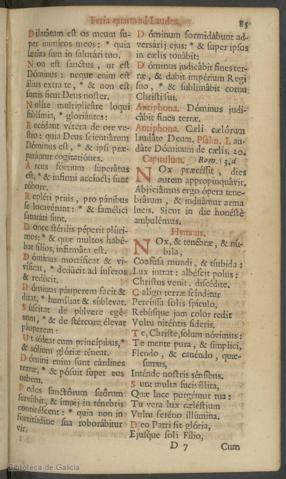 Feria quarta ad Laudes.
85
Dilatatum est os meum su-
per inimicos meos: * quia
lætata sum in salutari tuo.
Non est sanctus, ut est
Dóminus: neque enim est
alius extra te, * & non est
fortis sicut Deus noster.
Nolite multiplicáre loqui
sublimia, * gloriántes:
Recédant vétera de ore ve-
stro: quia Deus scientiárum
Dóminus est, * & ipsi præ-
parántur cogitatiónes.
Arcus fórtium superátus
est, * & infirmi accíncti sunt
róbore.
Repléti priùs, pro pánibus
se locavérunt: * & famélici
saturáti sunt.
Donec stérilis péperit plúri-
mos: * & quæ multos habé-
bat fílios, infirmáta est.
Dóminus mortíficat & vi-
víficat, * dedúcit ad ínferos
& redúcit.
Dóminus páuperem facit &
ditat, * humíliat & súblevat.
Súscitat de púlvere egé-
num, * & de stércore élevat
páuperem:
Ut sédeat cum princípibus, *
& sólium glóriæ téneat.
Dómini enim sunt cárdines
terræ, * & pósuit super eos
orbem.
Pedes sanctórum suórum
servábit, & ímpij in ténebris
conticéscent: * quia non in
fortitúdine sua roborábitur
vir.
Dóminum formidábunt ad-
versárij ejus: * & super ipsos
in cælis tonábit:
Dóminus judicábit fines ter-
ræ, & dabit impérium Regi
suo, * & sublimábit cornu
Christi sui.
Antiphona. Dóminus judi-
cábit fines terræ.
Antiphona. Cæli cælórum
laudáte Deum. Psalm. Lau-
dáte Dóminum de cælis. 20.
Capitulum. Rom. 13. d
NOx præcéssit, dies
autem appropinquávit.
Abjiciámus ergo ópera tene-
brárum, & induámur arma
lucis. Sicut in die honéstè
ambulémus.
Hymnus.
NOx, & tenébræ, & nú-
bila,
Confúsa mundi, & túrbida:
Lux intrat: albéscit polus:
Christus venit. discédite.
Calígo terræ scínditur
Percússa solis spículo,
Rebúsque jam color redit
Vultu niténtis síderis.
Te, Christe, solum nóvimus:
Te mente pura, & símplici,
Flendo, & canéndo, quæ-
sumus,
Inténde nostris sénsibus.
Sunt multa fucis íllita,
Quæ luce purgéntur tua:
Tu vera lux cæléstium
Vultu seréno illúmina.
Deo Patri sit glória,
Ejúsque soli Fílio,
D 7
Cum
Biblioteca de Galicia